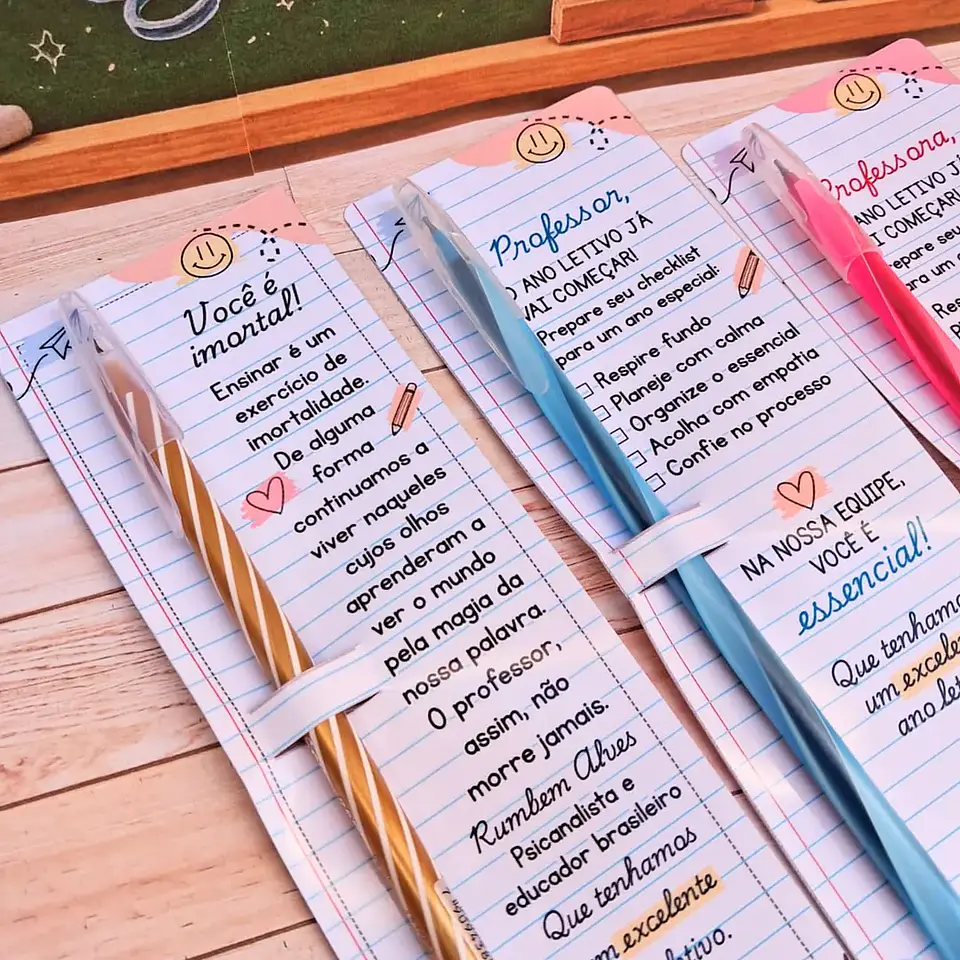 Você é
imortal!
Ensinar é um
exercício de
imortalidade.
De alguma
forma
continuamos a
viver naqueles
cujos olhos
aprenderam a
ver o mundo
pela magia da
nossa palavra.
O professor,
assim, não
morre jamais.
Rumbem Alves
Psicanalista e
educador brasileiro
Que tenhamos
excelente
Professor,
O ANO LETIVO JÁ
VAI COMEÇAR!
Prepare seu checklist
para um ano especial:
Respire fundo
Planeje com calma
Organize o essencial
Acolha com empatia
Confie no processo
NA NOSSA EQUIPE,
VOCÊ É
essencial!
Que tenhamo
um excele
ano le
Professora,
ANO LETIVO J
AI COMEÇAR!
epare seu
ara um a
Res